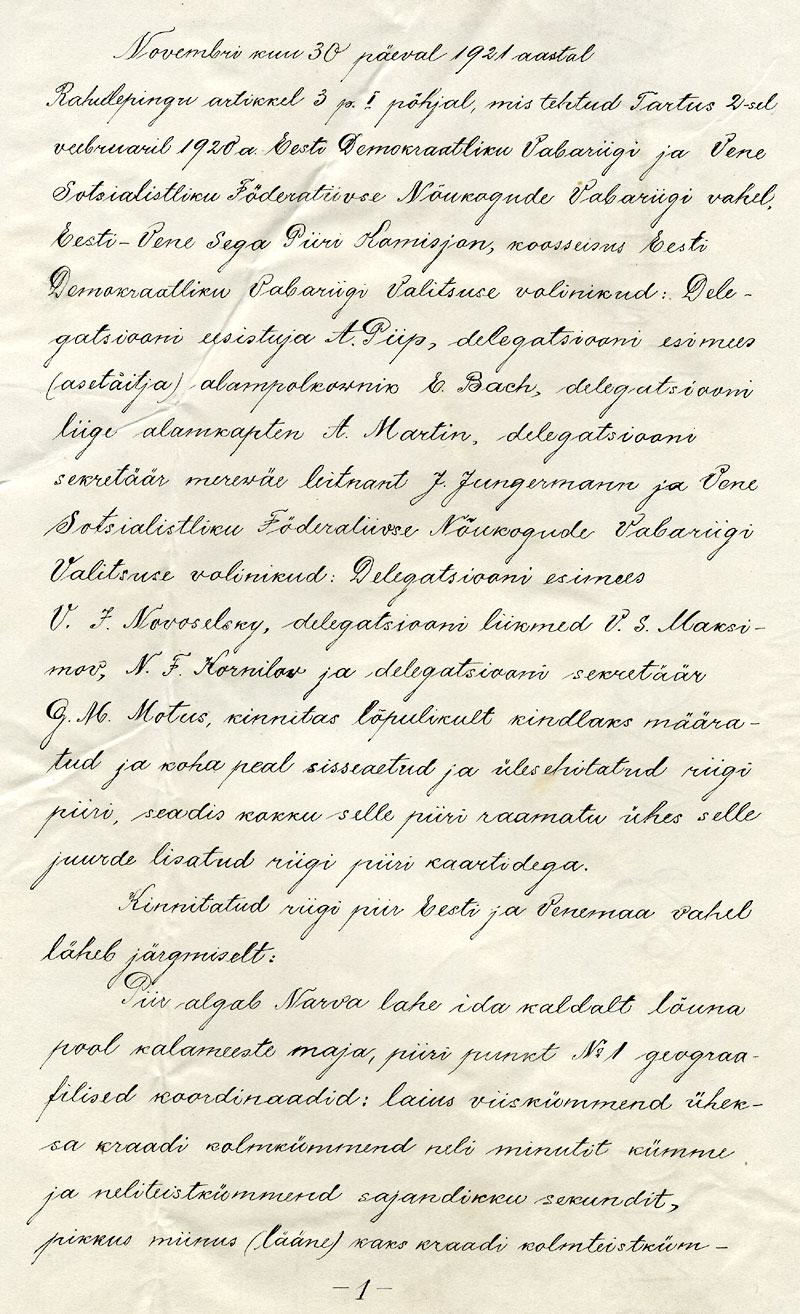 Novembri kuu 30 päeval 1921 aastal
Rahulepingu artikkel 3 p. I põhjal, mis tehtud Tartus 2-sel
veebruaril 1920 a. Eesti Demokraatliku Vabariigi ja Vene
Sotsialistliku Föderatiivse Nõukogude Vabariigi vahel,
Eesti-Vene Sega Piiri Komisjon, koosseisus Eesti
Demokraatliku Vabariigi Valitsuse volinikud: Dele-
gatsiooni eesistuja A. Piip, delegatsiooni esimees
(asetäitja) alampolkownik E. Bach, delegatsiooni
liige alamkapten A. Martin, delegatsiooni
sekretäär merewäe leitnant J. Jungermann ja Vene
Sotsialistliku Föderatiivse Nõukogude Vabariigi
Valitsuse volinikud: Delegatsiooni esimees
V. J. Novoselsky, delegatsiooni liikmed V. S. Maksi-
mov, N. F. Kornilov ja delegatsiooni sekretäär
G. M. Motus, kinnitas lõpulikult kindlaks määra-
tud ja koha peal sisseaetud ja ülesehitatud riigi
piiri, seadis kokku selle piiri raamatu ühes selle
juurde lisatud riigi piiri kaartidega.
Kinnitatud riigi piir Eesti ja Venemaa vahel
läheb järgmiselt:
Piir algab Narva lahe ida kaldalt lõuna
pool kalameeste maja, piiri punkt № 1 geograa-
filised koordinaadid: laius viiskümmend ühek-
sa kraadi kolmkümmend neli minutit kümme
ja neliteistkümmend sajandikku sekundit,
pikkus miinus (lääne) kaks kraadi kolmteistküm-
-1-